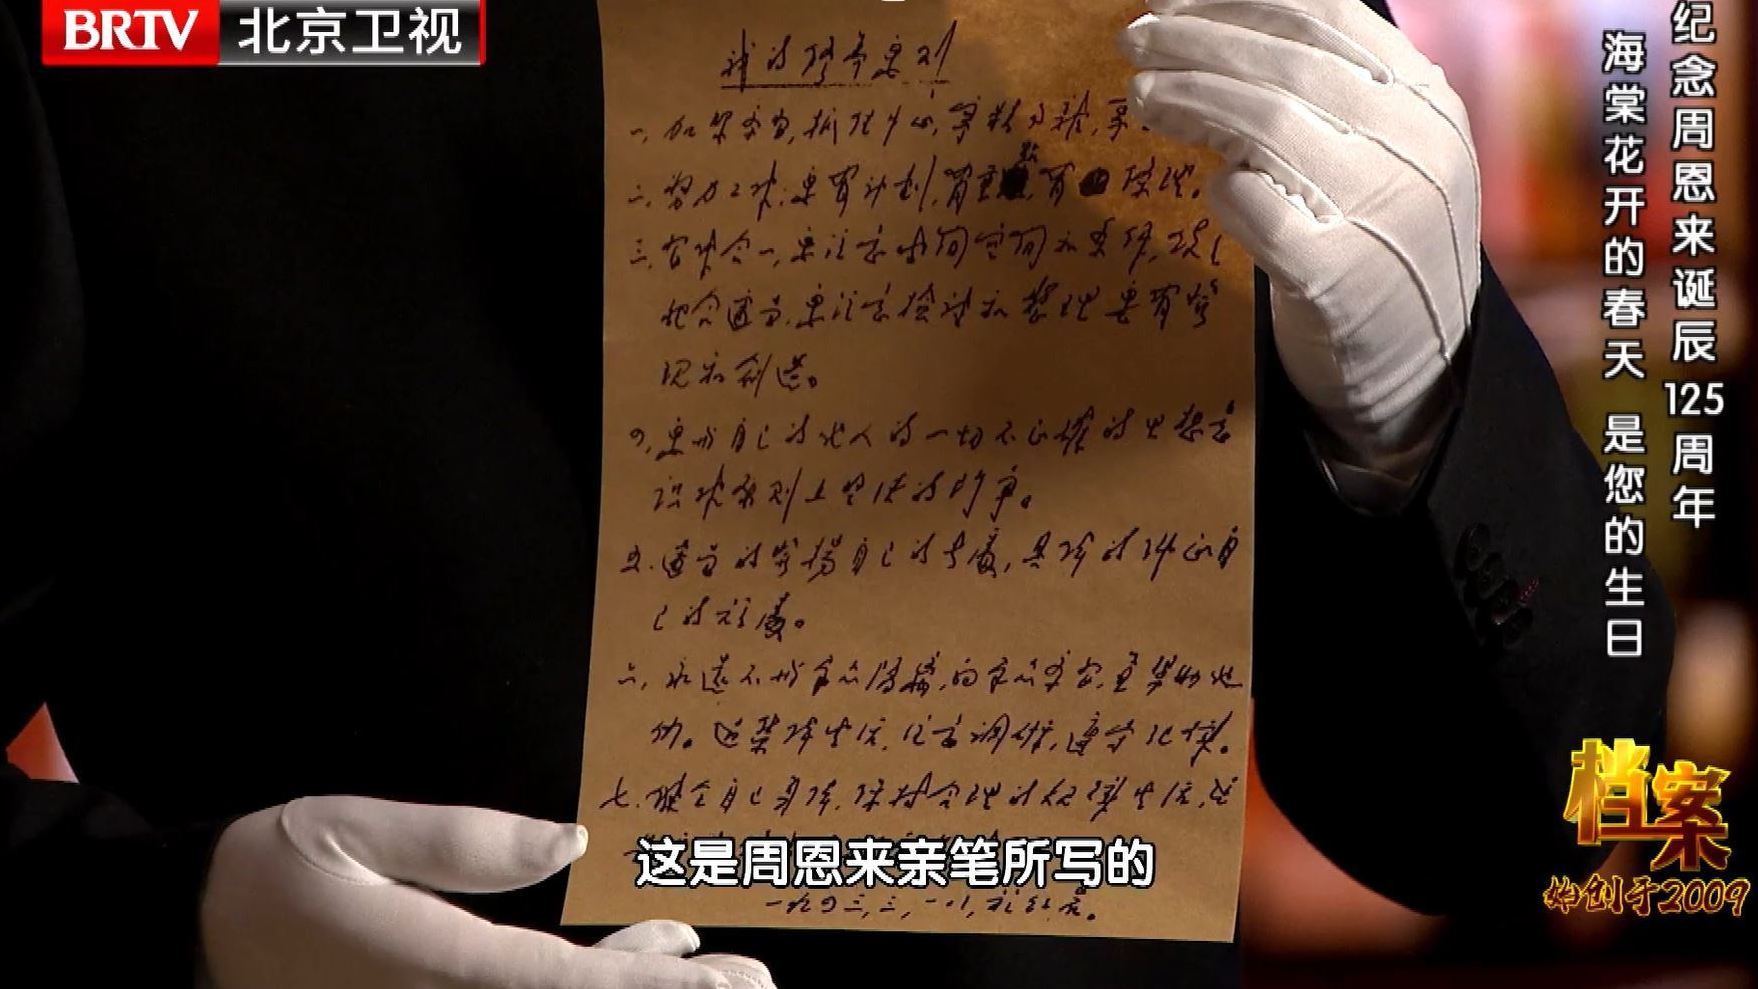 BRTV 北京卫视
纪念周恩来诞辰125周年
海棠花开的春天 是您的生日
我的修养要则
一、加紧学习,抓住中心,宁精勿杂,宁
二、努力工作,要有计划,有重点,有条理。
三、习作合一,要注意时间空间和条件,使之
配合适当,要注意检讨和整理,要有发
现和创造。
四、要与自己的他人的一切不正确的思想意
识作原则上坚决的斗争。
五、适当的发扬自己的长处,具体的纠正自
己的短处。
六、永远不与群众隔离,向群众学习,并帮助他
们。过集体生活,注意调研,遵守纪律。
七、健全自己身体,保持合理的规律生活,这
这是周恩来亲笔所写的
一九四三,三,一八,于红岩。
档案
始创于2009